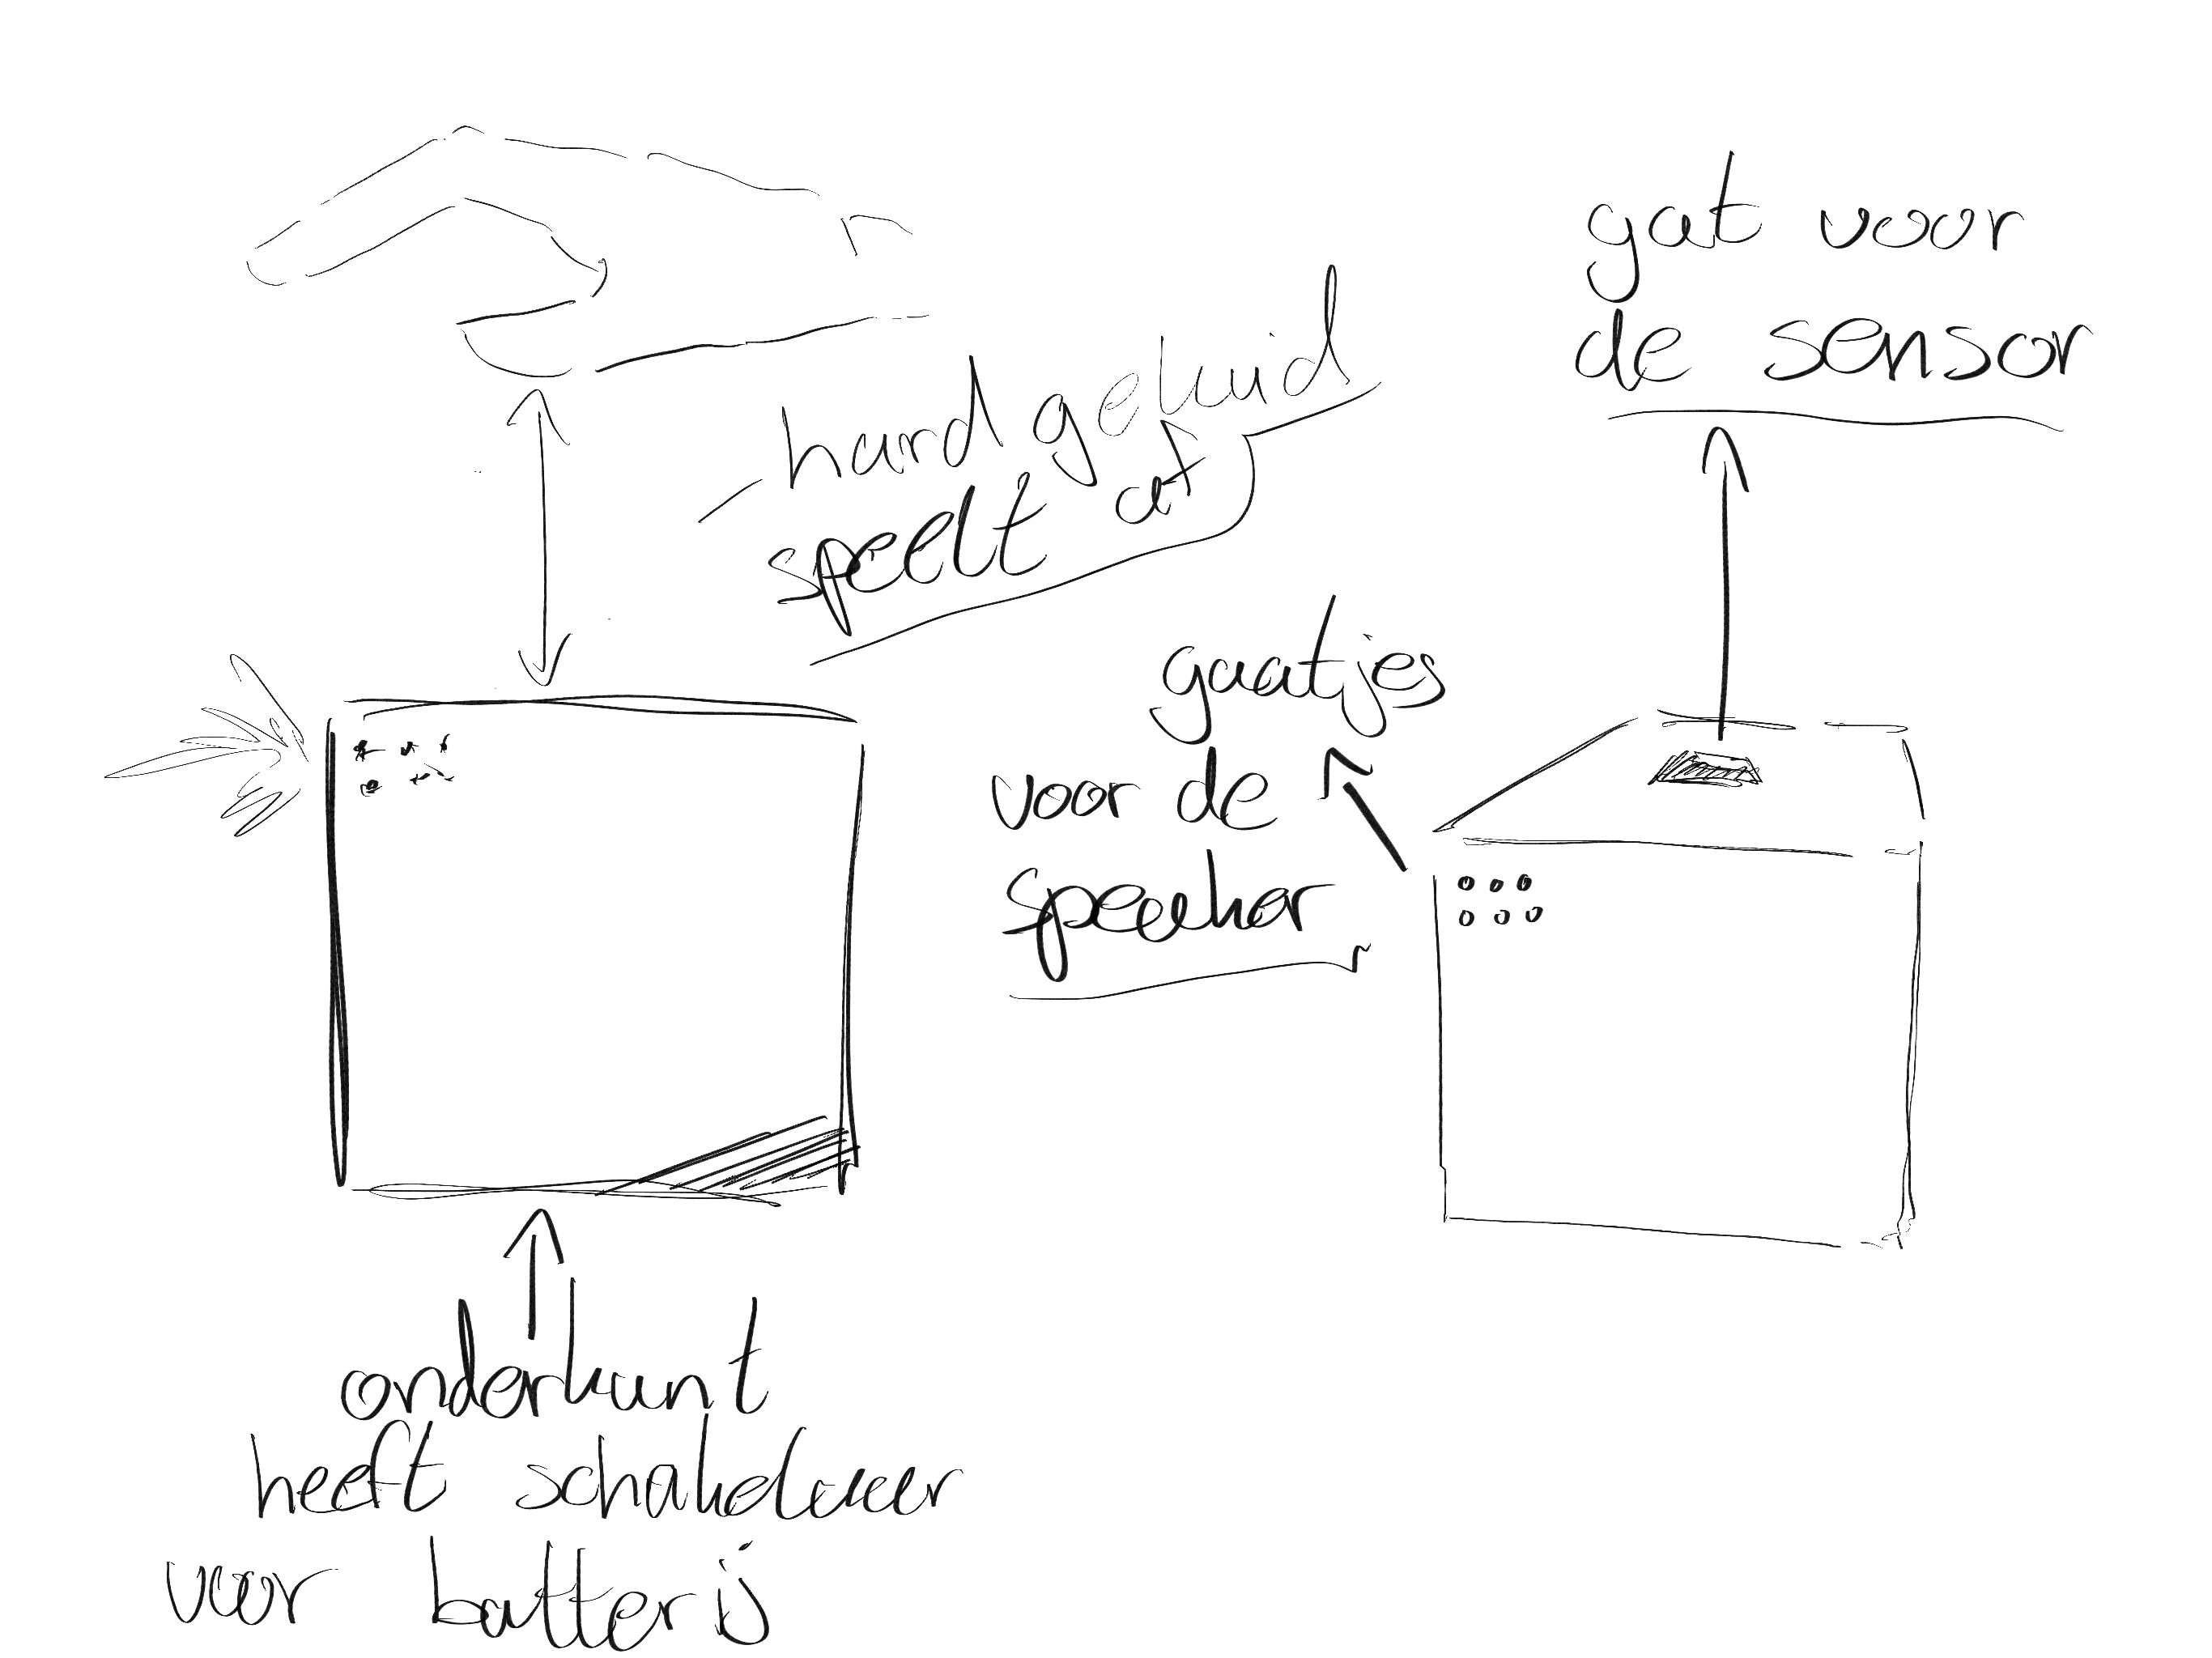 hard geluid
speelt af
gat voor
de sensor
gaatjes
voor de
speaker
onderkant
heeft schakelaar
voor batterij